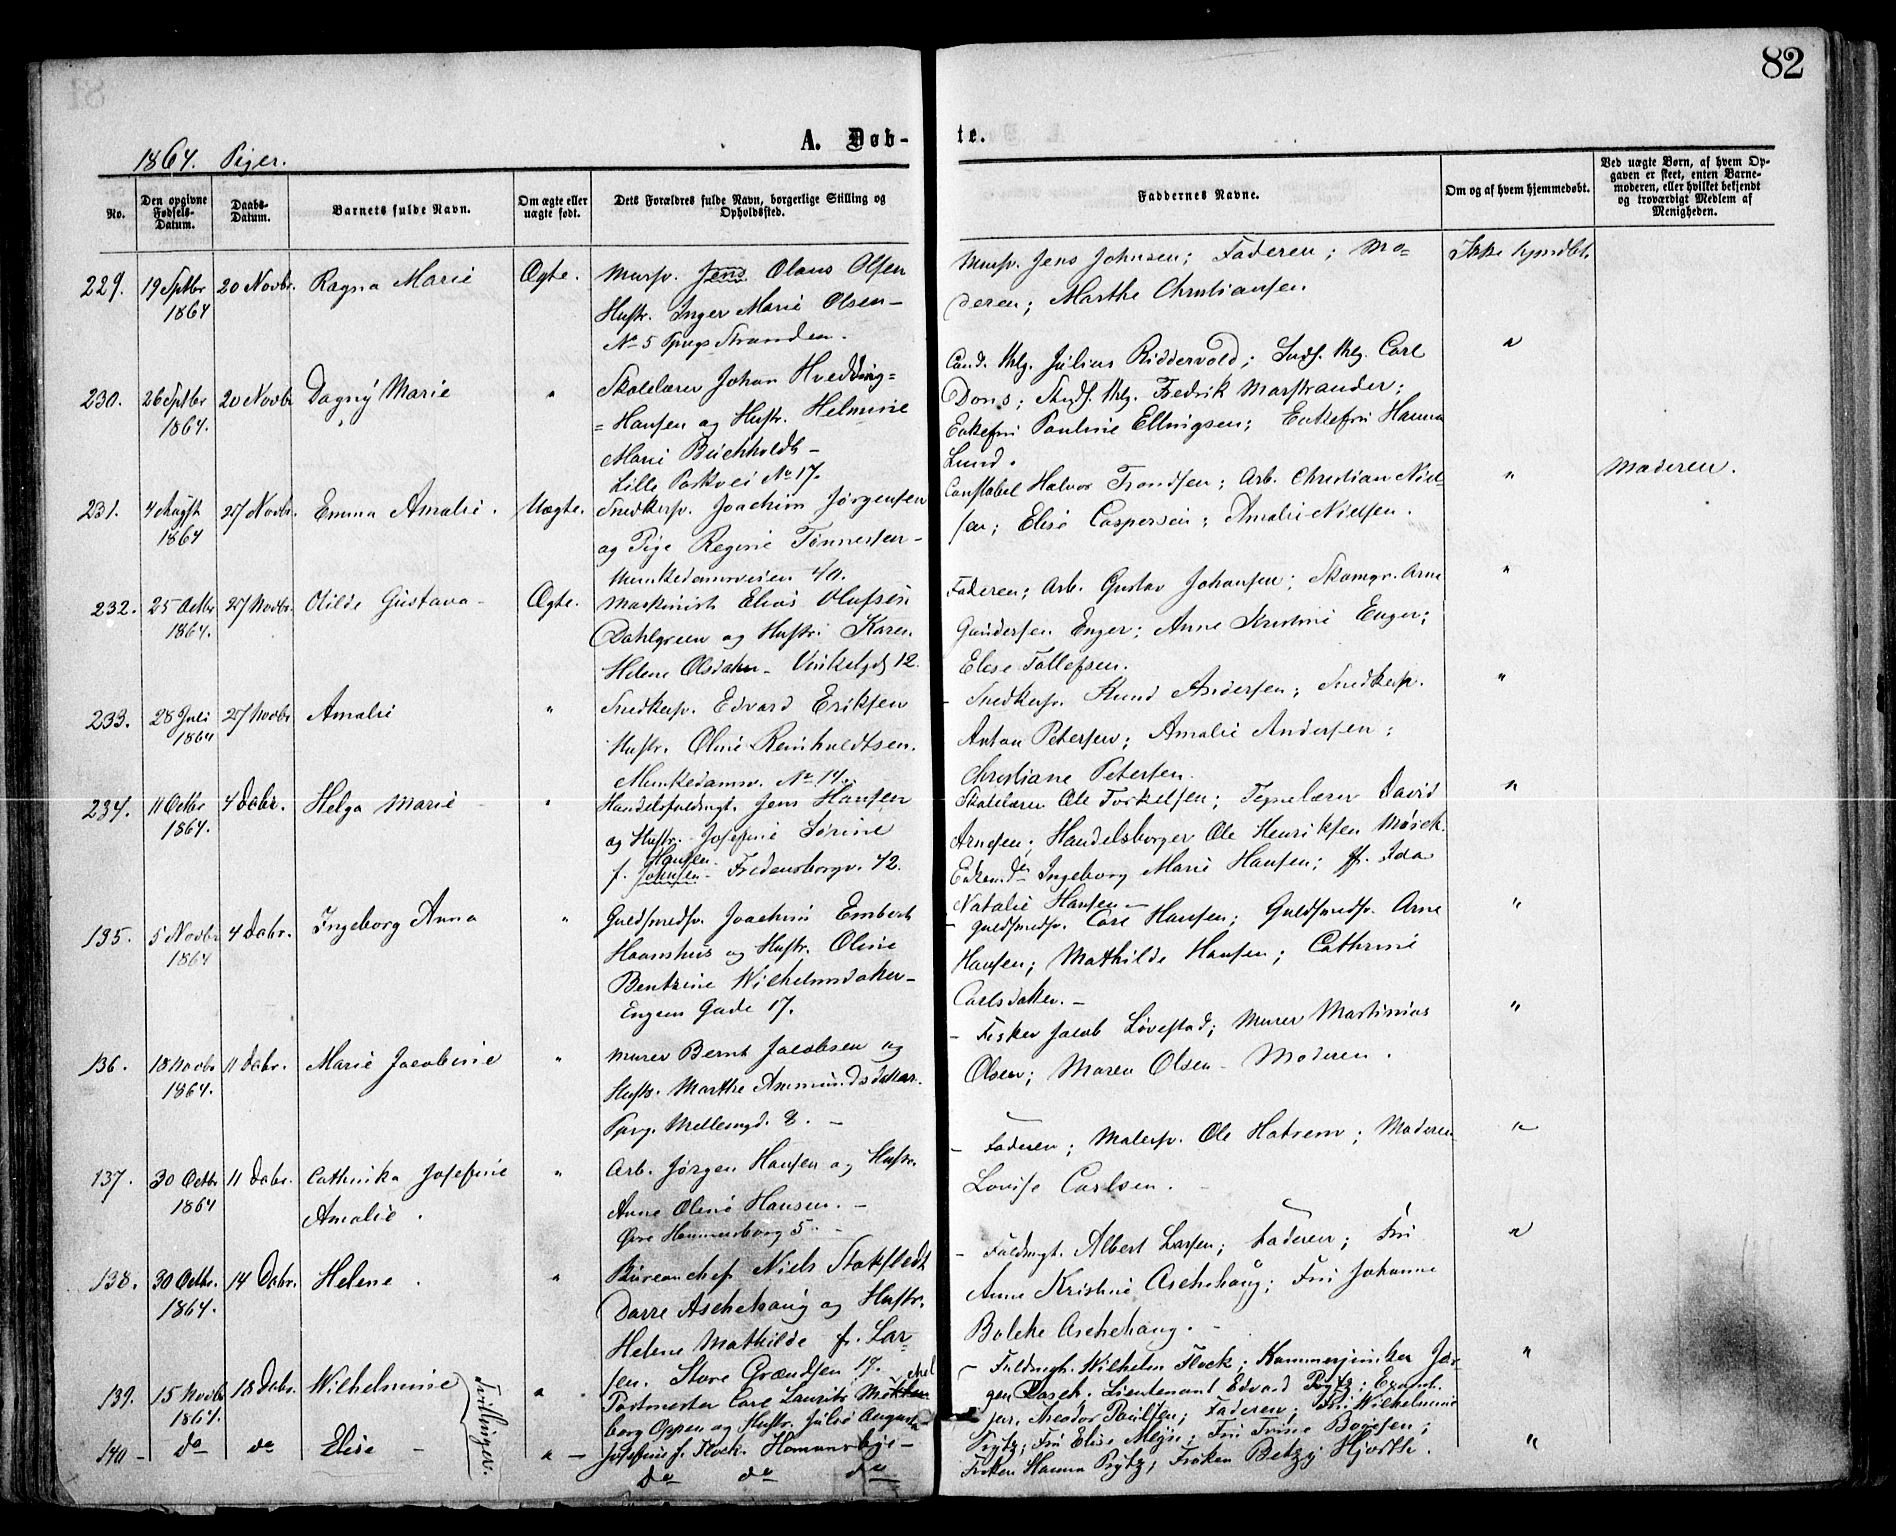 82
A. Døb-
te.
1864. Piger.
No.
Den opgivne Fødsels-Datum.
Daabs-Datum.
Barnets fulde Navn.
Om ægte eller uægte født.
Dets Forældres fulde Navn, borgerlige Stilling og Opholdssted.
Faddernes Navne.
Om og af hvem hjemmedøbt.
Ved uægte Børn, af hvem Op-
gaven er skeet, enten Barne-
moderen, eller hvilket bekjendt
og troværdigt Medlem af
Menigheden.
229. 19 Septbr 1864 20 Novbr. Ragna Marie Ægte.
Mursv. Jens Olaus Olsen
Hustr. Inger Marie Olsen –
No 5 Stranden.
Mursv. Jens Johnsen; Faderen; Mo-
deren; Marthe Christiansen
Ikke hjmdbt.
230. 26 Septbr 1864. 20 Novbr Dagny Marie "
Skolelærer Johan Hvedding=
=Hansen og Hustr. Helmine
Marie Buchholdt –
Lille Parkvei No 17.
Cand. thlg. Julius Riddervold; Stud. thlg. Carl
Dons; Stud. thlg. Fredrik Marstrander;
Enkefru Pauline Ellingsen; Enkefru Hanna
Lund.
"
231. 4 August 1864 27 Novbr. Emma Amalie. Uægte.
Snedkersv. Joachim Jørgensen
og Pige Regine Tønnesen –
Munkedamsveien 40.
Constabel Halvor Trondsen; Arb. Christian Niel
sen; Elise Caspersen; Amalie Nielsen.
"
Moderen.
232. 25 Octbr 1864. 27 Novbr. Otilde Gustava – Ægte.
Maskinist Elias Olufsen
Dahlgreen og Hustr. Karen
Helene Olsdatter – Vinkelgd 12.
Faderen; Arb. Gustav Johansen; Skomgr. Arne
Gundersen Enger; Anne Kristine Enger;
Elise Tollefsen.
"
233. 28 Juli 1864 27 Novbr Amalie "
Snedkersv. Edvard Eriksen
Hustr. Oline Reinholdtsen.
Munkedamsv. No 14.
– Snedkersv. Knud Andersen; Snedkersv.
Anton Petersen; Amalie Andersen;
Christiane Petersen.
"
234. 11 Octbr 1864. 4 Dcbr. Helga Marie – "
Handelsfuldmgt. Jens Hansen
og Hustr. Josefine Sørine
f. Johnsen Hansen. – Fredensborgv. 42.
Skolelærer Ole Torkelsen; Tegnelærer David
Arnesen; Handelsborger Ole Henriksen Mørck.
Ingeborg Marie Hansen; Jfr. Ida
Natalie Hansen –
"
135. 5 Novbr 1864 4 Dcbr. Ingeborg Anna "
Guldsmedsv. Joachim Embert
Haanshus og Hustr. Oline
Bentzine Wilhelmsdatter –
Engens Gade 17.
– Guldsmedsv. Carl Hansen; Guldsmedsv. Arne
Hansen; Mathilde Hansen; Cathrine
Carlsdatter. –
"
136. 18 Novbr 1864. 11 Dcbr. Marie Jacobine "
Murer Bernt Jacobsen og
Hustr. Marthe Ammundsdatter.
Mellemgd. 8. –
– Fisker Jacob Løvestad; Murer Martinius
Olsen; Maren Olsen – Moderen.
"
137. 30 Octbr 1864 11 Dcbr. Cathinka Josefine
Amalie. "
Arb. Jørgen Hansen og Hustr.
Anne Oline Hansen. –
Øvre Hammersborg 5. –
– Faderen; Malersv. Ole Hatrem; Moderen
Lovise Carlsen. –
"
138. 30 Octbr. 1864. 14 Dcbr. Helene. "
Bureauchef Niels Stokfledt
Darre Aschehoug og Hustr.
Helene Mathilde f. Lar-
sen. Store Grændsen 17.
– Fuldmgt. Albert Larsen; Faderen; Fru
Anne Kristine Aschehoug; Fru Johanne
Bolette Aschehoug. –
"
139. 15 Novbr 1864. 18 Dcbr. Wilhelmine "
Tvillinger.
Postmester Carl Laurits
borg Oppen og Hustr. Julie Augusta
Josefine f. Flock. Homansbye –
– Fuldmgt. Wilhelm Flock; Kammerjunker Jør-
gen; Lieutenant Edvard Prytz; Examl.
jur. Theodor Poulsen; Faderen; Fru Wilhelmine
Prytz; Fru Elise; Fru Trine Boyesen;
Frøken Hanna Prytz; Frøken Betzy Hjorth.
"
140 – do do Elise – " –
do do do
"